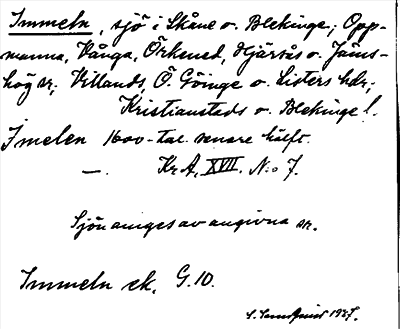 Immeln, sjö i Skåne o. Blekinge; Opp-
manna, Vånga, Örkened, Hjärsås o. Jäms-
hög sn, Villands, Ö. Göinge o. Listers hdr;
Kristianstads o. Blekinge l.
Imelen 1600-tal. senare hälft.
— . Kr A, XVII. N:o 7.
Sjön anges av angivna sn.
Immeln ek. G. 10.
S. 1927.